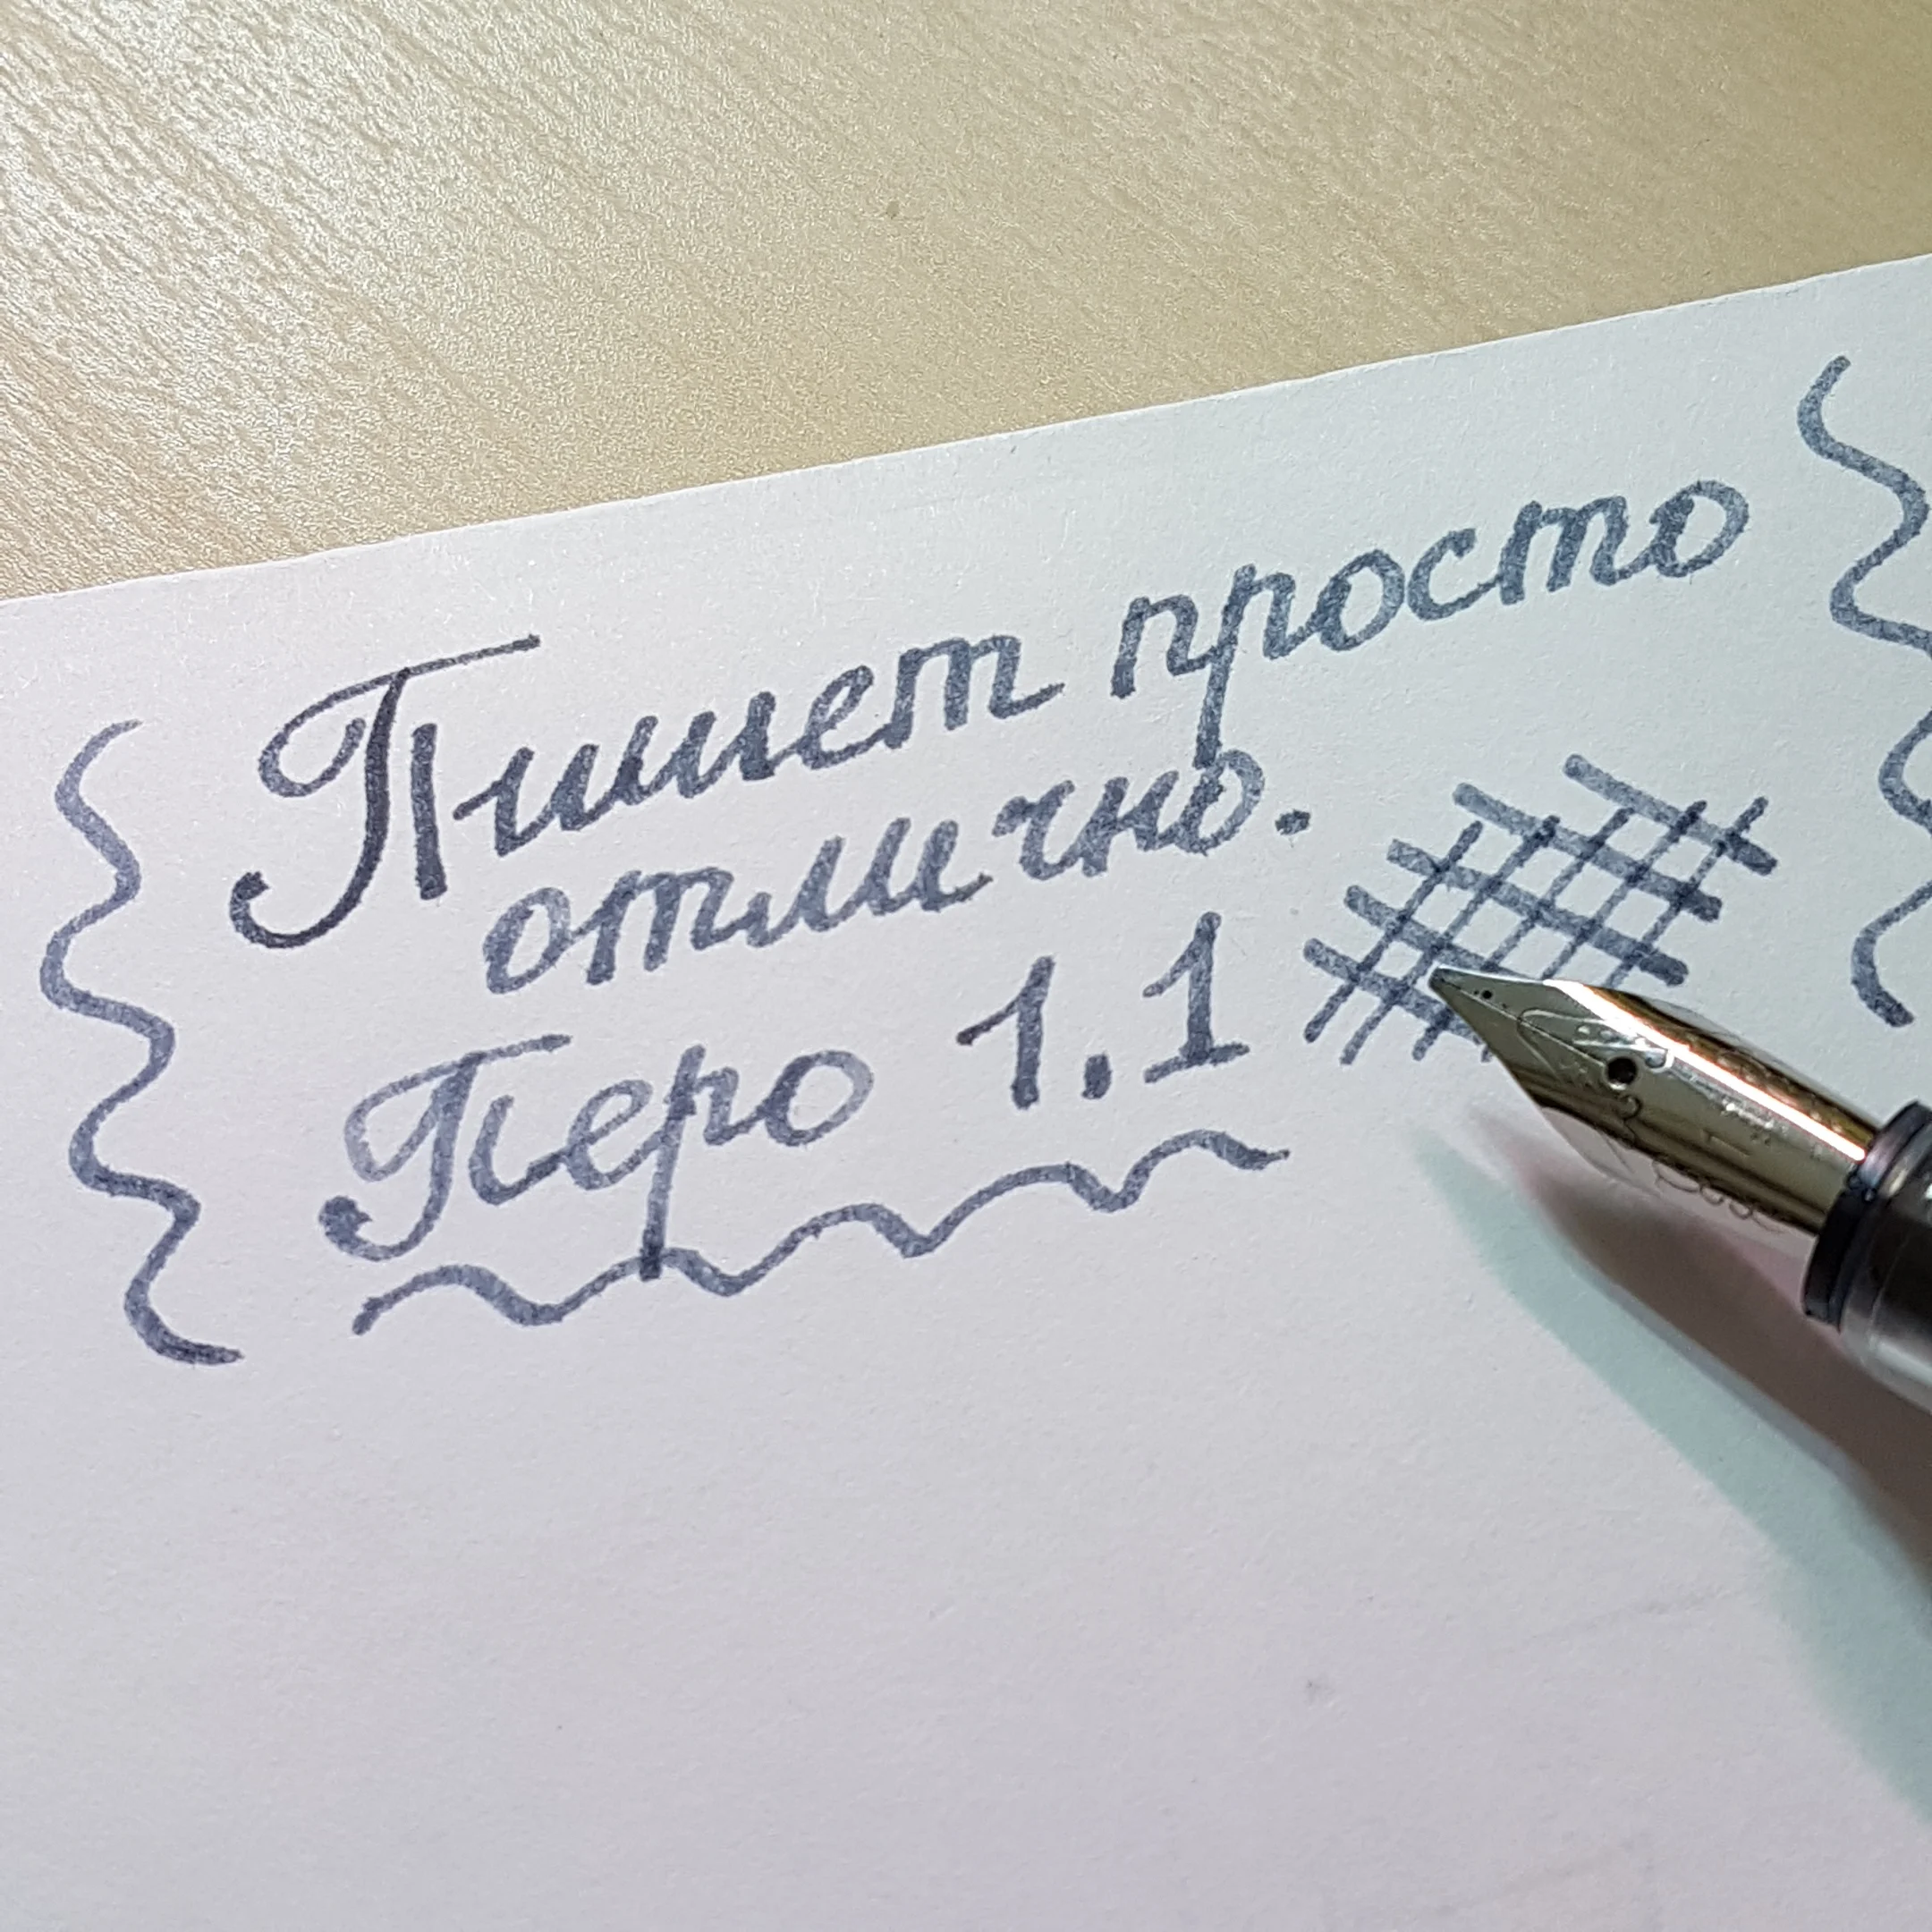 Пишет просто
отлично.
Перо 1.1